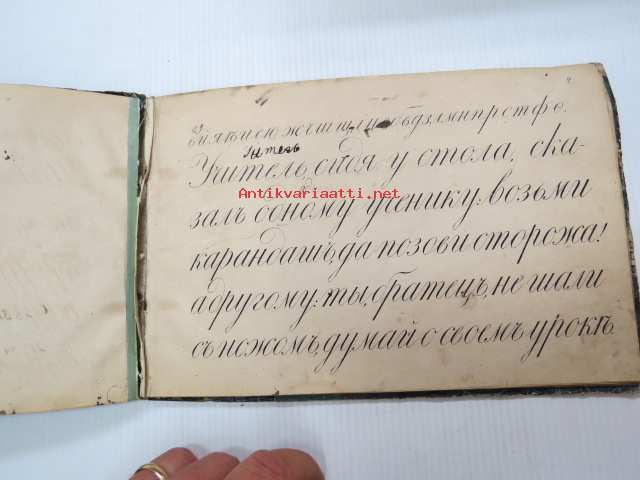 2
Учитель, сидя у стола, ска-
залъ одному ученику: возьми
карандашъ, да позови сторожа!
а другому: ты, братецъ, не шали
съ ножомъ, думай о своемъ урокѣ.
Antikvariaatti.net